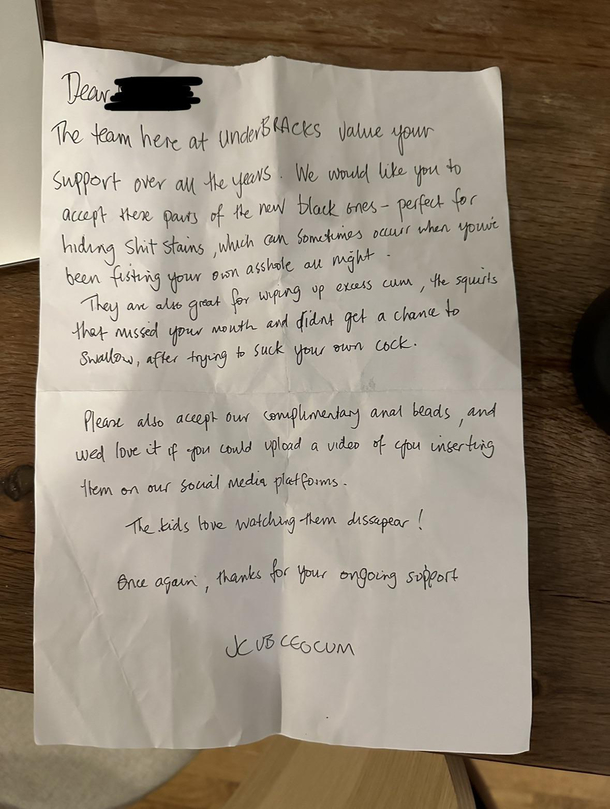 Dear
The team here at UnderBRACKS value your
support over all the years. We would like you to
accept these pairs of the new black ones - perfect for
hiding shit stains, which can sometimes occur when youve
been fisting your own asshole all night.
They are also great for wiping up excess cum, the squirts
that missed your mouth and didnt get a chance to
swallow, after trying to suck your own cock.
Please also accept our complimentary anal beads, and
wed love it if you could upload a video of you inserting
them on our social media platforms.
The kids love watching them dissapear!
Once again, thanks for your ongoing support